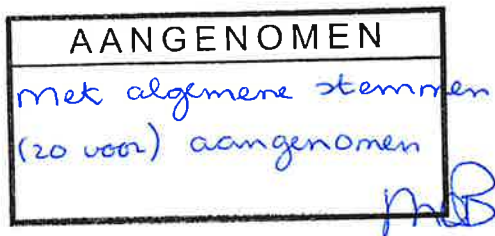 AANGENOMEN
Met algemene stemmen
(20 voor) aangenomen